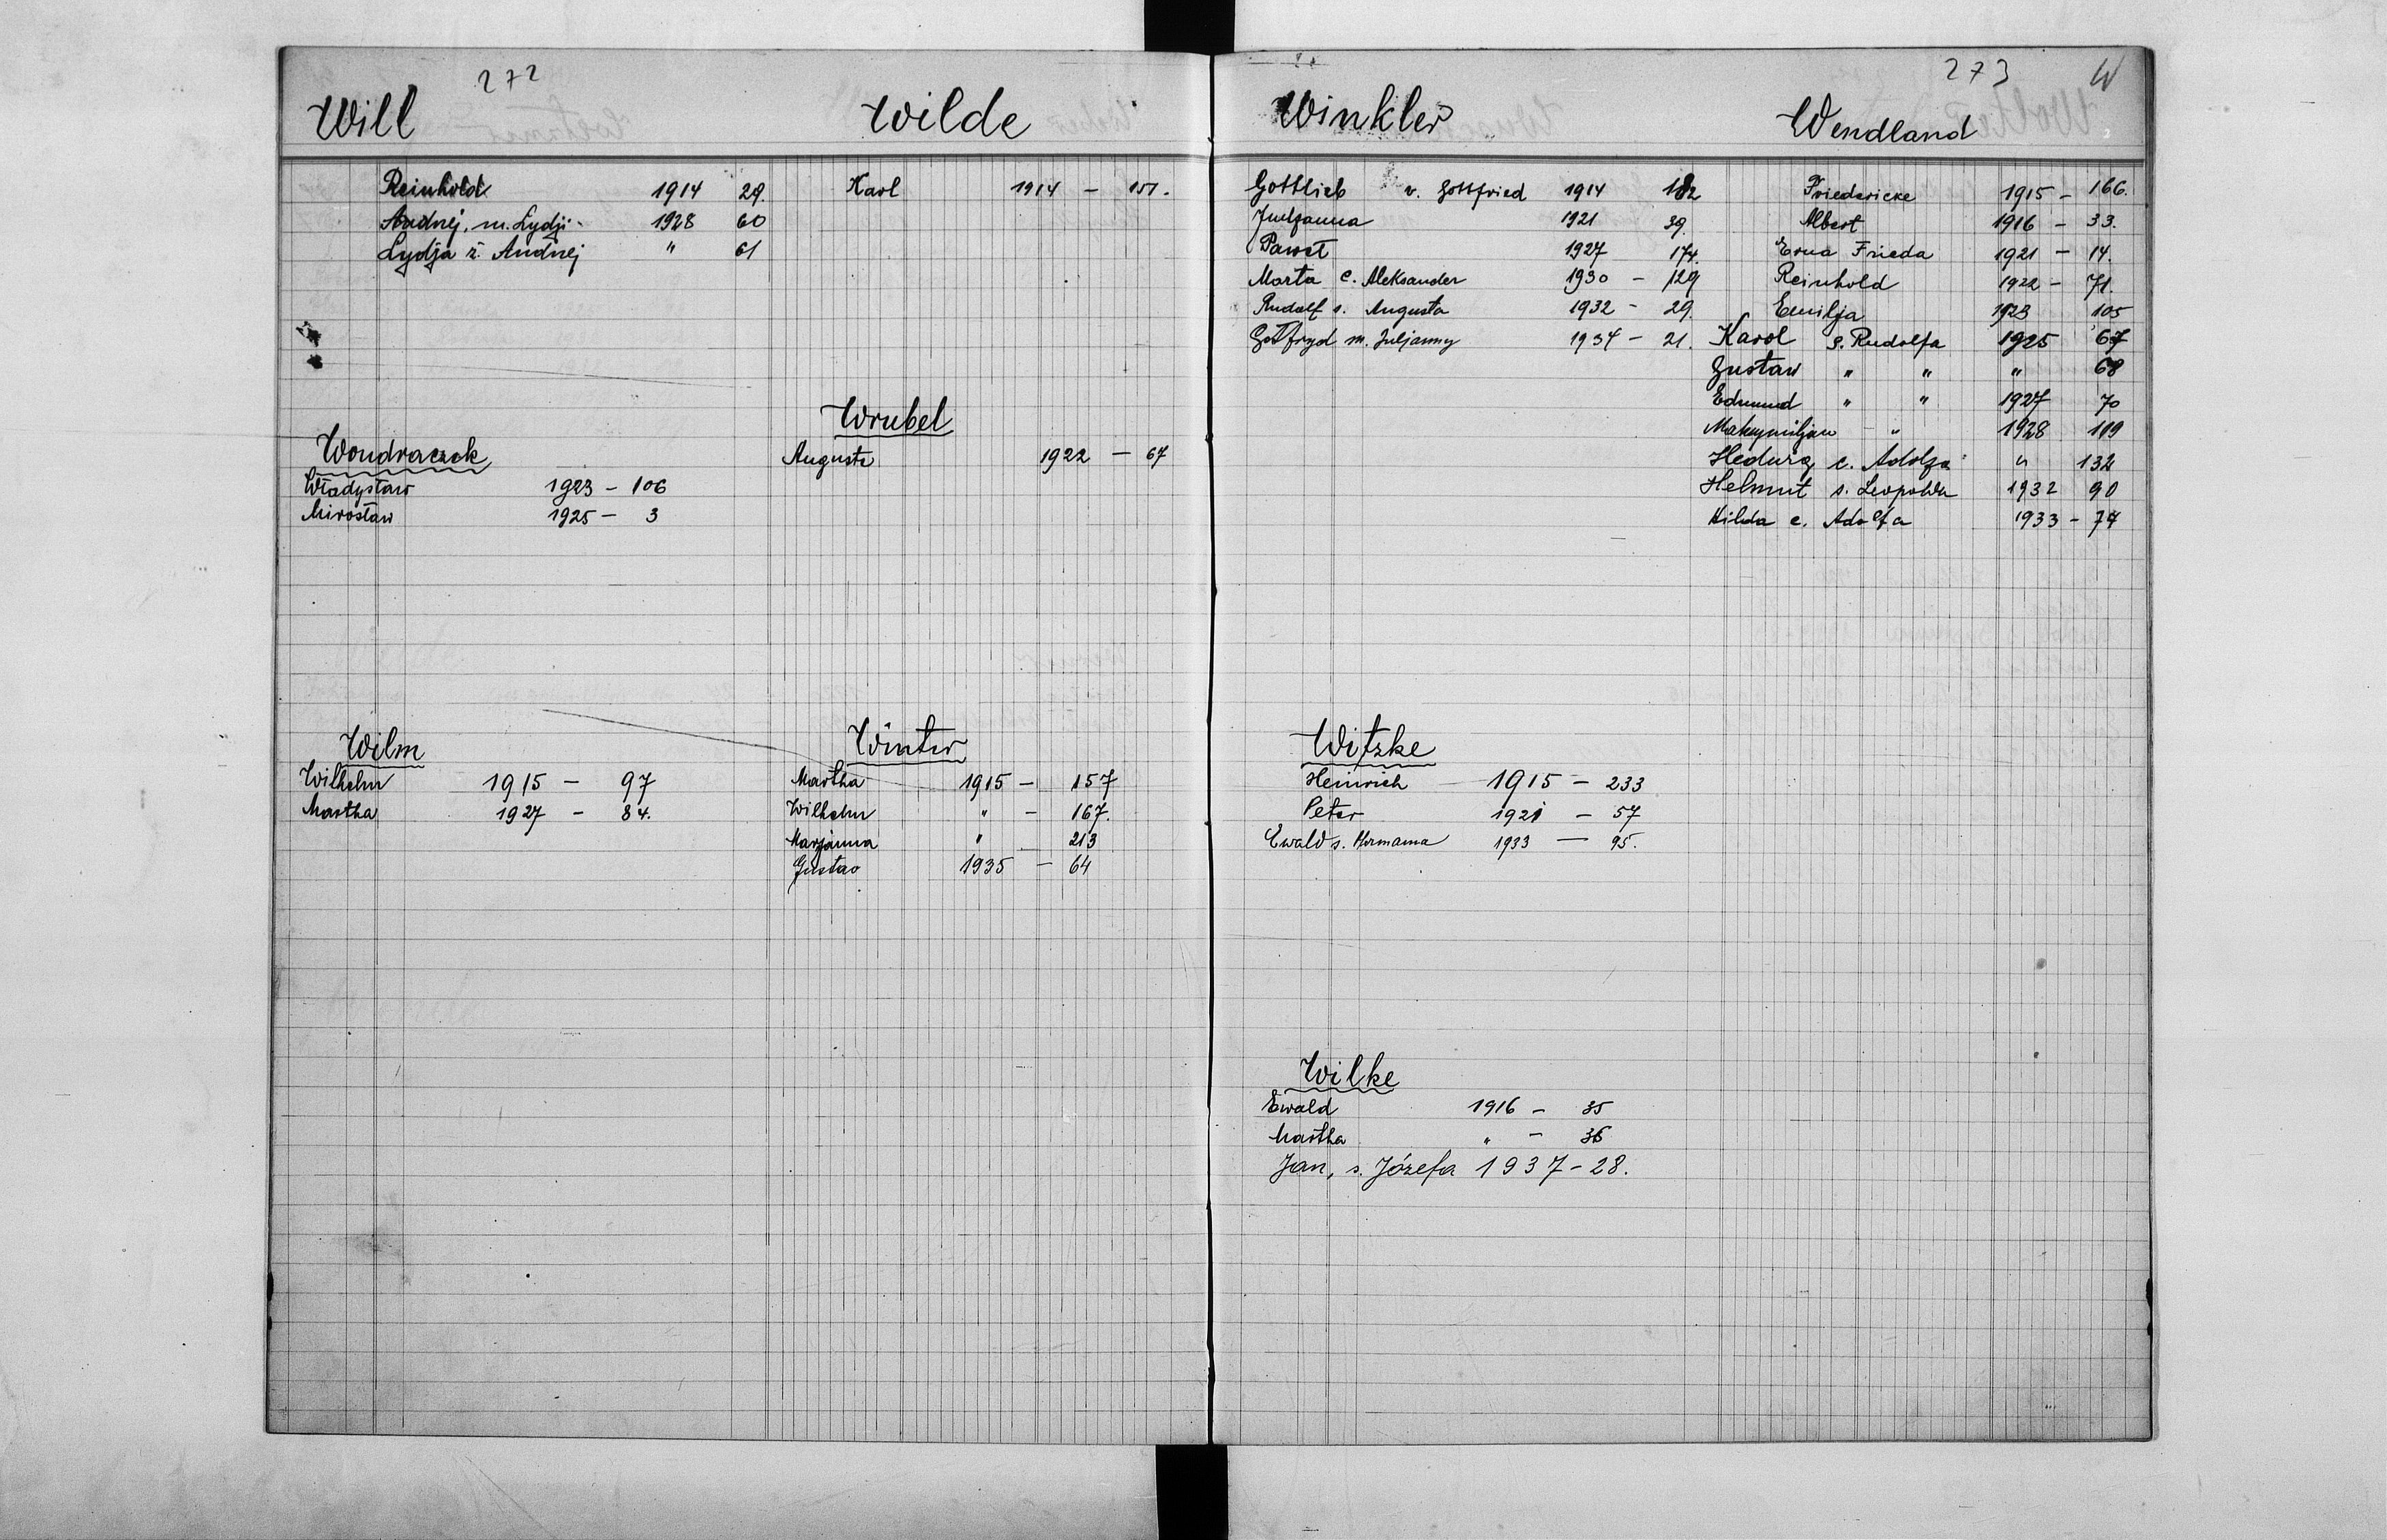 272
Will
Reinhold 1914 29.
Andrej, m. Lydji - 1928 60
Lydja ż. Andrej " 61
Wondraczek
Władysław 1923 - 106
Mirosław 1925 - 3
Wilm
Wilhelm 1915 - 97
Martha 1927 - 84.
Wilde
Karl 1914 - 151.
Wrubel
Auguste 1922 - 67
Winter
Martha 1915 - 157
Wilhelm " - 167.
Marjanna " 213
Gustav 1935 - 64
273 W
Winkler
Gottlieb v. Gottfried 1914 182
Juljanna 1921 39.
Paweł 1927 174.
Marta c. Aleksander 1930 - 129
Rudolf s. Augusta 1932 - 29.
Gotfryd m. Juljanny 1934 - 21.
Witzke
Heinrich 1915 - 233
Peter 1921 - 57
Ewald s. Hermana 1933 - 95.
Wilke
Ewald 1916 - 35
Martha " - 36
Jan, s. Józefa 1937 - 28.
Wendland
Friedericke 1915 - 166.
Albert 1916 - 33.
Erna Frieda 1921 - 14.
Reinhold 1922 - 71.
Emilja 1923 105
Karol s. Rudolfa 1925 67
Gustaw " " " 68
Edmund " " 1927 70
Maksymiljan - " 1928 119
Hedwig c. Adolfa " 132
Helmut s. Leopolda 1932 90
Hilda c. Adolfa 1933 - 74